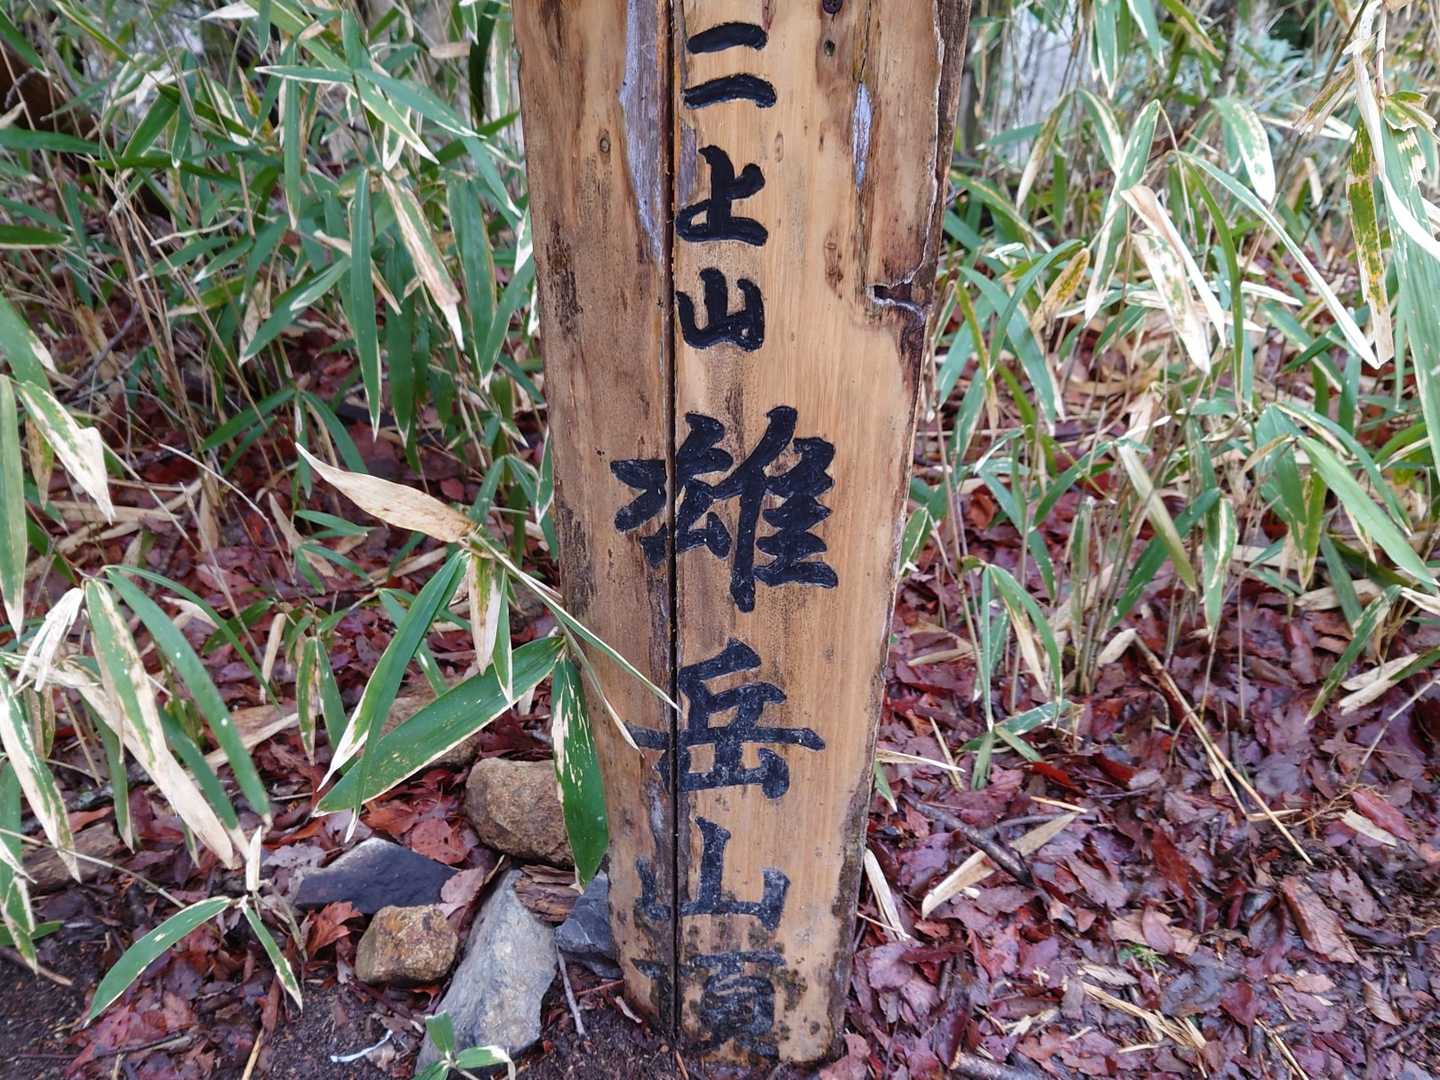 二上山
雄岳山頂